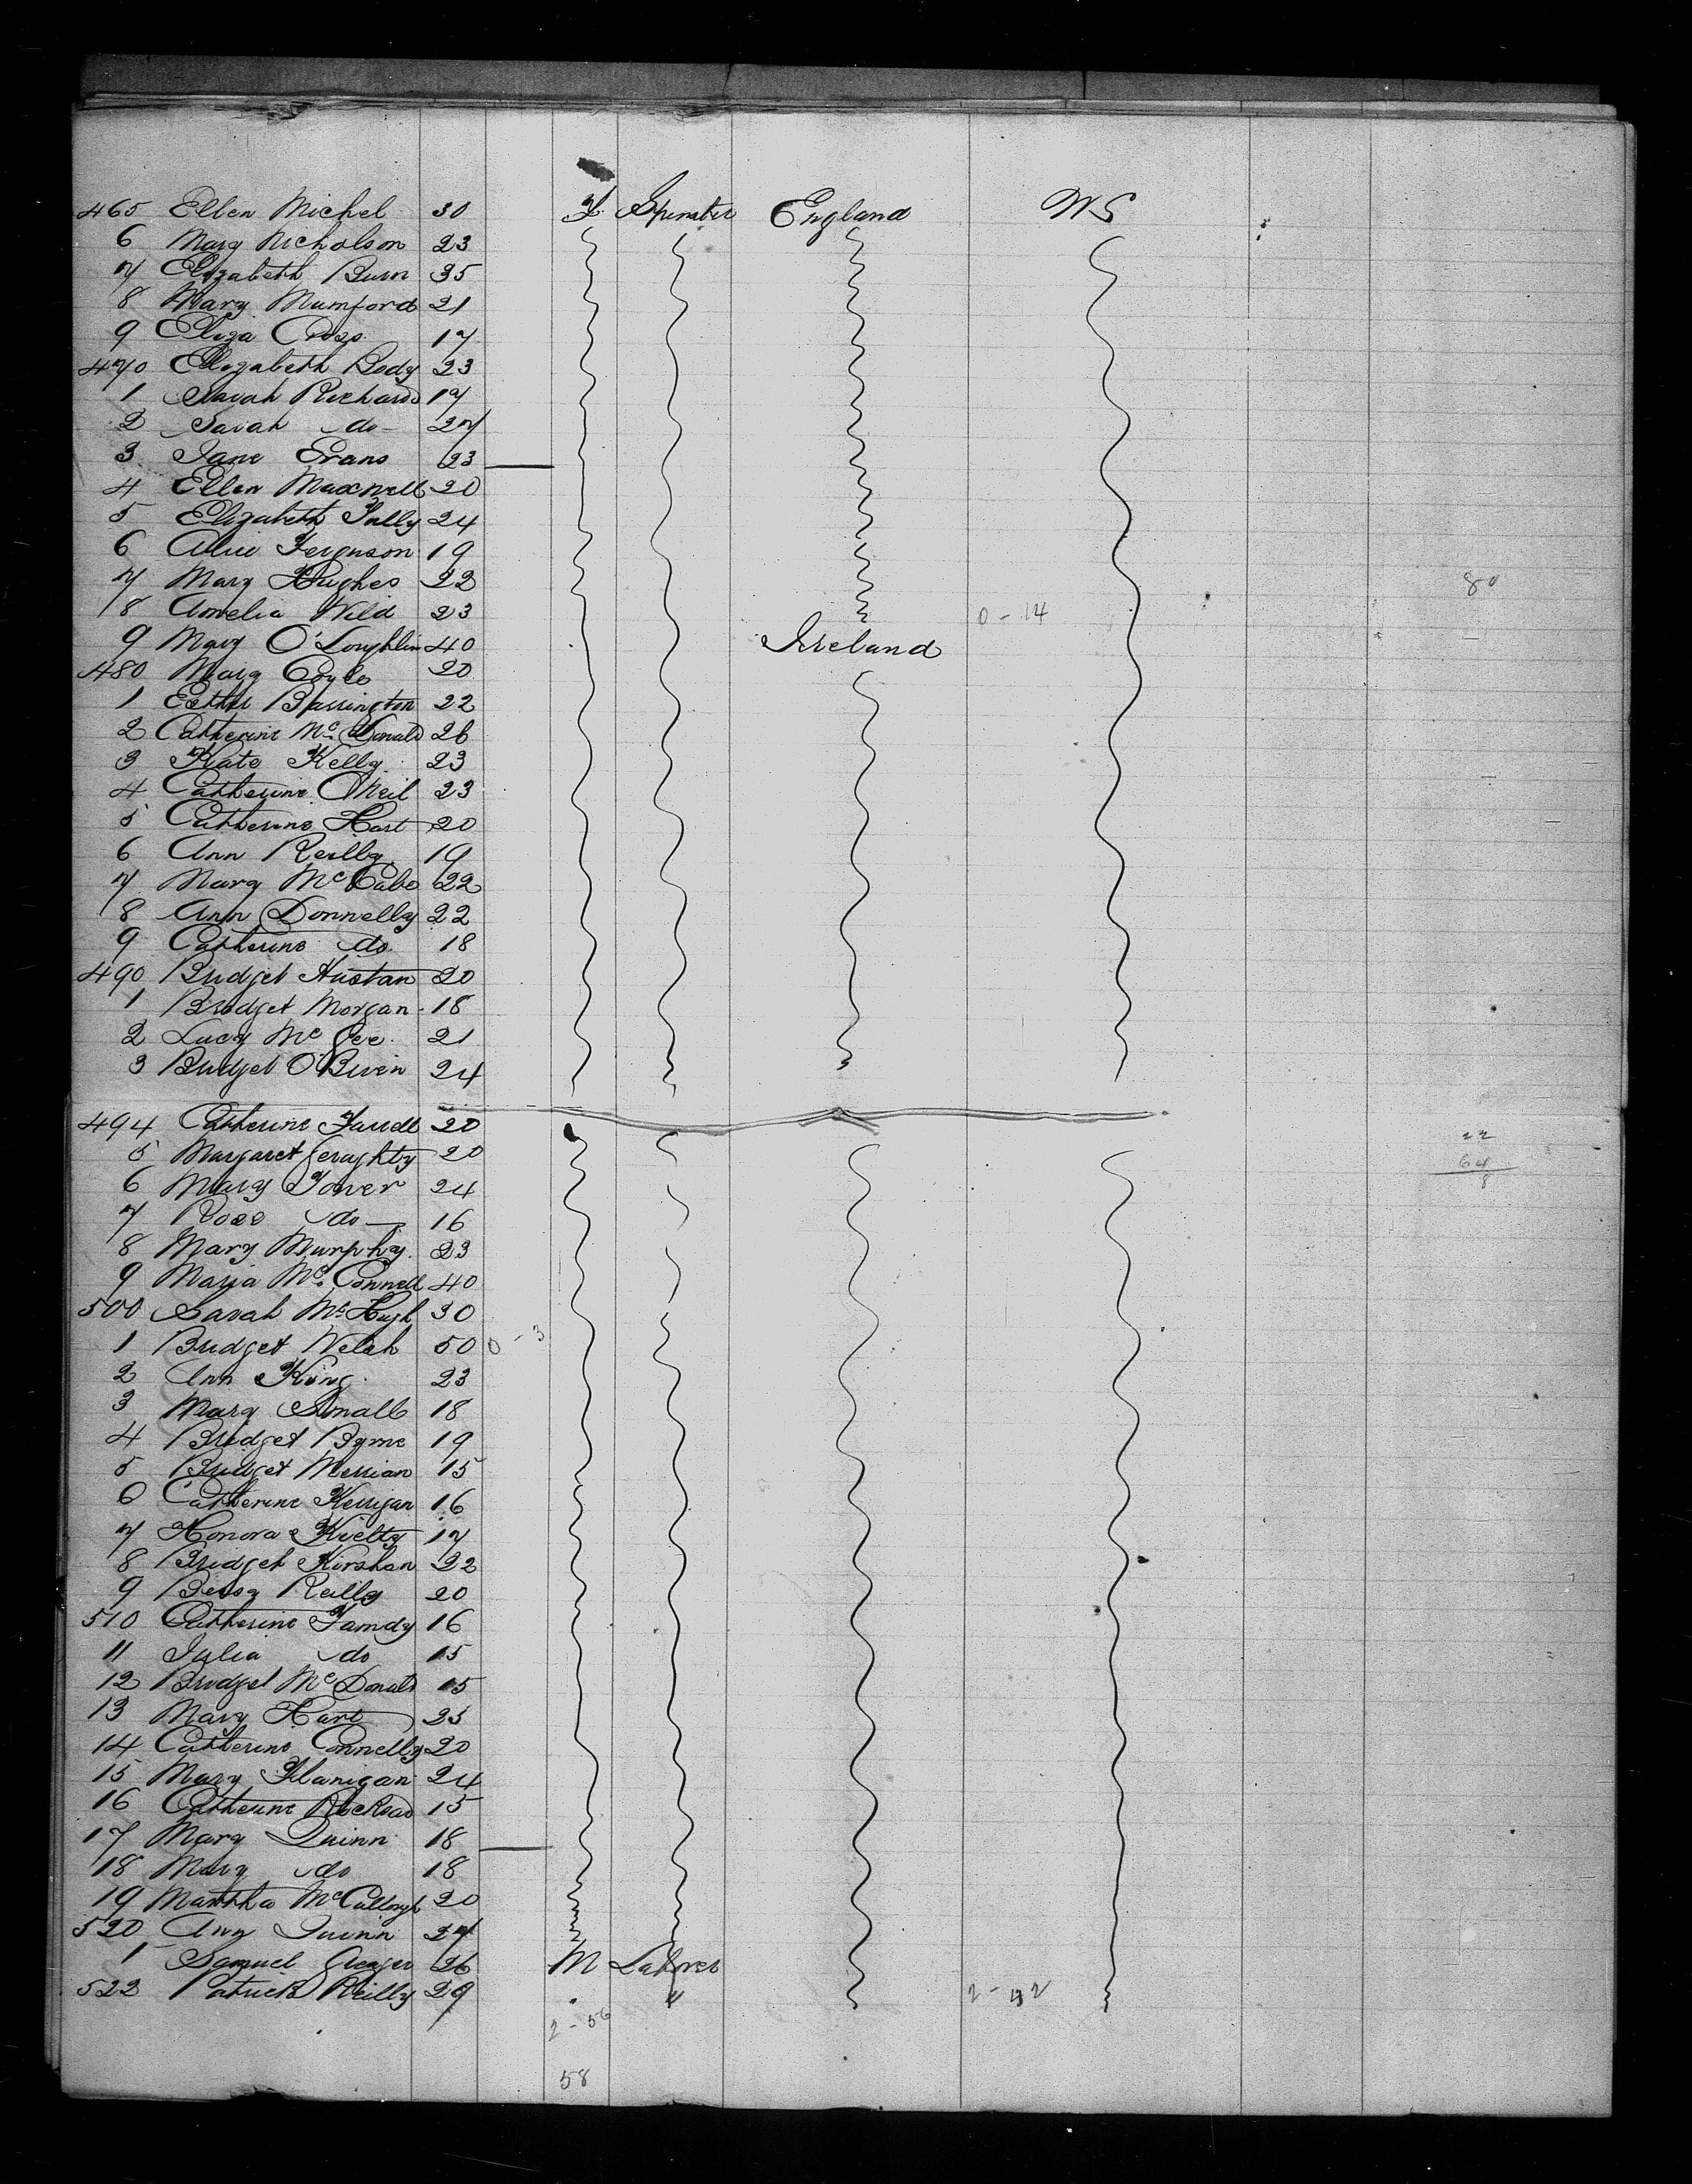 465 Ellen Michel 30 F Spinster England US
6 Mary Nicholson 23
7 Elizabeth Burn 35
8 Mary Mumford 21
9 Eliza 17
470 Elizabeth Body 23
1 Sarah Richards 17
2 Sarah do 27
3 Jane Evans 23
4 Ellen Maxwell 20
5 Elizabeth 24
6 Alice Ferguson 19
7 Mary Hughes 22 80
8 Amelia Wild 23 0-14
9 Mary O'Loughlin 40 Ireland
480 Mary Coyle 20
1 Esther Barrington 22
2 Catherine Mc Donald 26
3 Kate Kelly 23
4 Catherine ONeil 23
5 Catherine Hart 20
6 Ann Reilly 19
7 Mary McCabe 22
8 Ann Donnelly 22
9 Catherine do 18
490 Bridget Hustan 20
1 Bridget Morgan 18
2 Lucy McGee 21
3 Bridget O'Brien 24
494 Catherine Farrell 20 22
5 Margaret Geraghty 20 64
6 Mary Tower 24 8
7 Rose do 16
8 Mary Murphy 23
9 Maria McConnell 40
500 Sarah McHugh 30
1 Bridget Welsh 50 0-3
2 Ann King 23
3 Mary Small 18
4 Bridget Byrne 19
5 Bridget Merrian 15
6 Catherine Kerrigan 16
7 Honora Kielty 17
8 Bridget Kirshan 22
9 Bessy Reilly 20
510 Catherine 16
11 Julia do 15
12 Bridget McDonald 15
13 Mary Hart 25
14 Catherine Connelly 20
15 Mary Flanigan 24
16 Catherine 15
17 Mary Quinn 18
18 Mary do 18
19 Martha McCullough 20
520 Ann Quinn 27
1 Samuel 26 M Laborer
522 Patrick Reilly 29 " 2-42
2-56
58